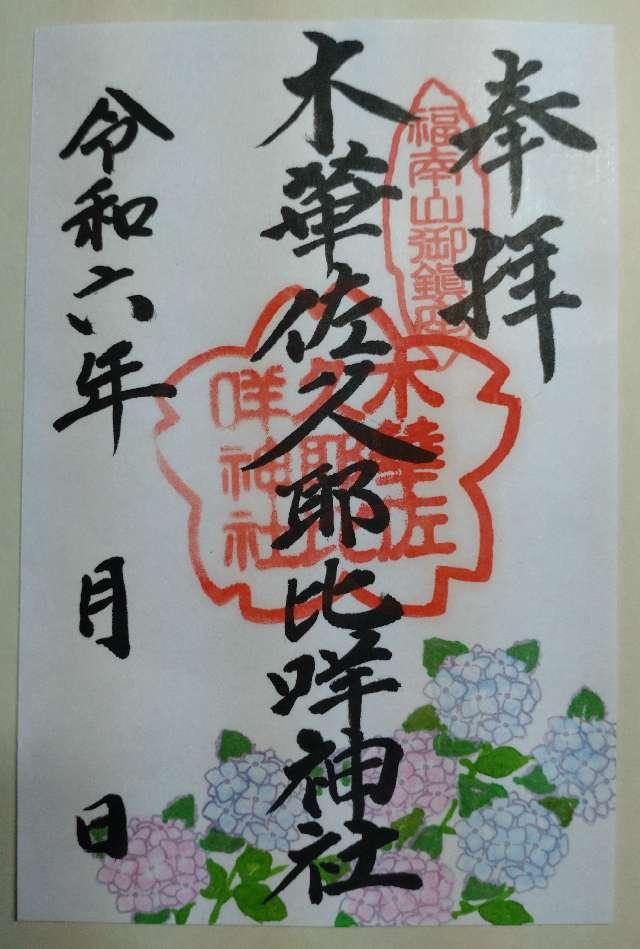 奉拝
福南山御鎮座
木華佐久耶比咩神社
木華佐
久耶比
咩神社
令和六年 月 日